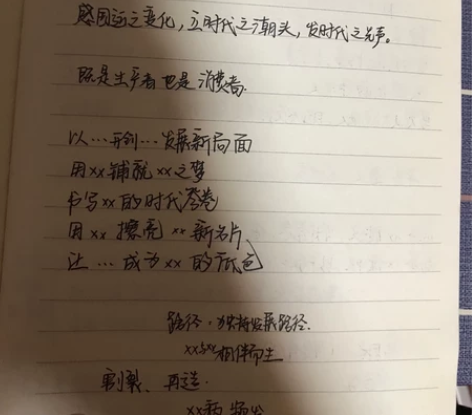 感国运之变化，立时代之潮头，发时代之先声。
既是生产者也是消费者.
以…开创…发展新局面
用xx铺就xx之梦
书写xx的时代答卷
用xx 擦亮 xx 新名片
让 … 成为 xx 的底色
路径 · 独特发展路径.
xx与xx相伴而生
割裂、再造.